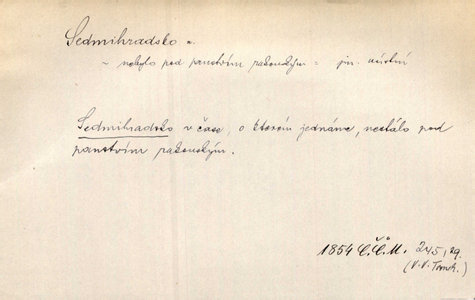 Sedmihradsko n.
~ nebylo pod panstvím rakouským =
Sedmihradsko v čase, o kterém jednáme, nestálo pod
panstvím rakouským.
1854 Č.Č.M. 245, 29.
(V.V. Tomk.)